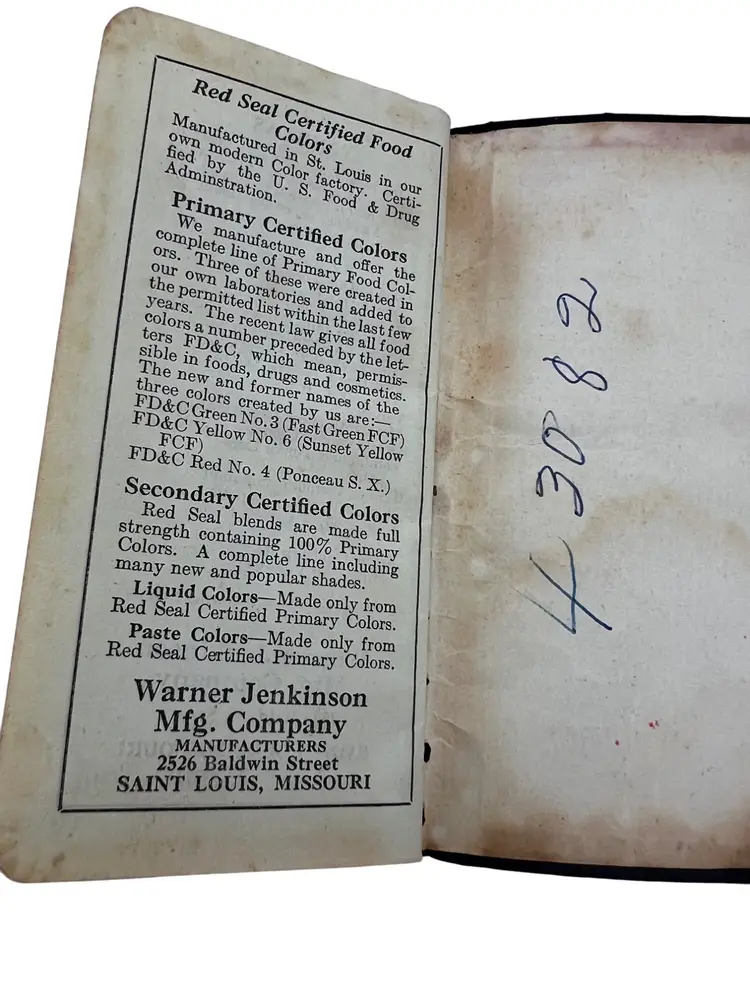 Red Seal Certified Food
Colors
Manufactured in St. Louis in our
own modern Color factory. Certi-
fied by the U. S. Food & Drug
Adminstration.
Primary Certified Colors
We manufacture and offer the
complete line of Primary Food Col-
ors. Three of these were created in
our own laboratories and added to
the permitted list within the last few
years. The recent law gives all food
colors a number preceded by the let-
ters FD&C, which mean, permis-
sible in foods, drugs and cosmetics.
The new and former names of the
three colors created by us are:—
FD&C Green No. 3 (Fast Green FCF)
FD&C Yellow No. 6 (Sunset Yellow
FCF)
FD&C Red No. 4 (Ponceau S. X.)
Secondary Certified Colors
Red Seal blends are made full
strength containing 100% Primary
Colors. A complete line including
many new and popular shades.
Liquid Colors—Made only from
Red Seal Certified Primary Colors.
Paste Colors—Made only from
Red Seal Certified Primary Colors.
Warner Jenkinson
Mfg. Company
MANUFACTURERS
2526 Baldwin Street
SAINT LOUIS, MISSOURI
4 30 82